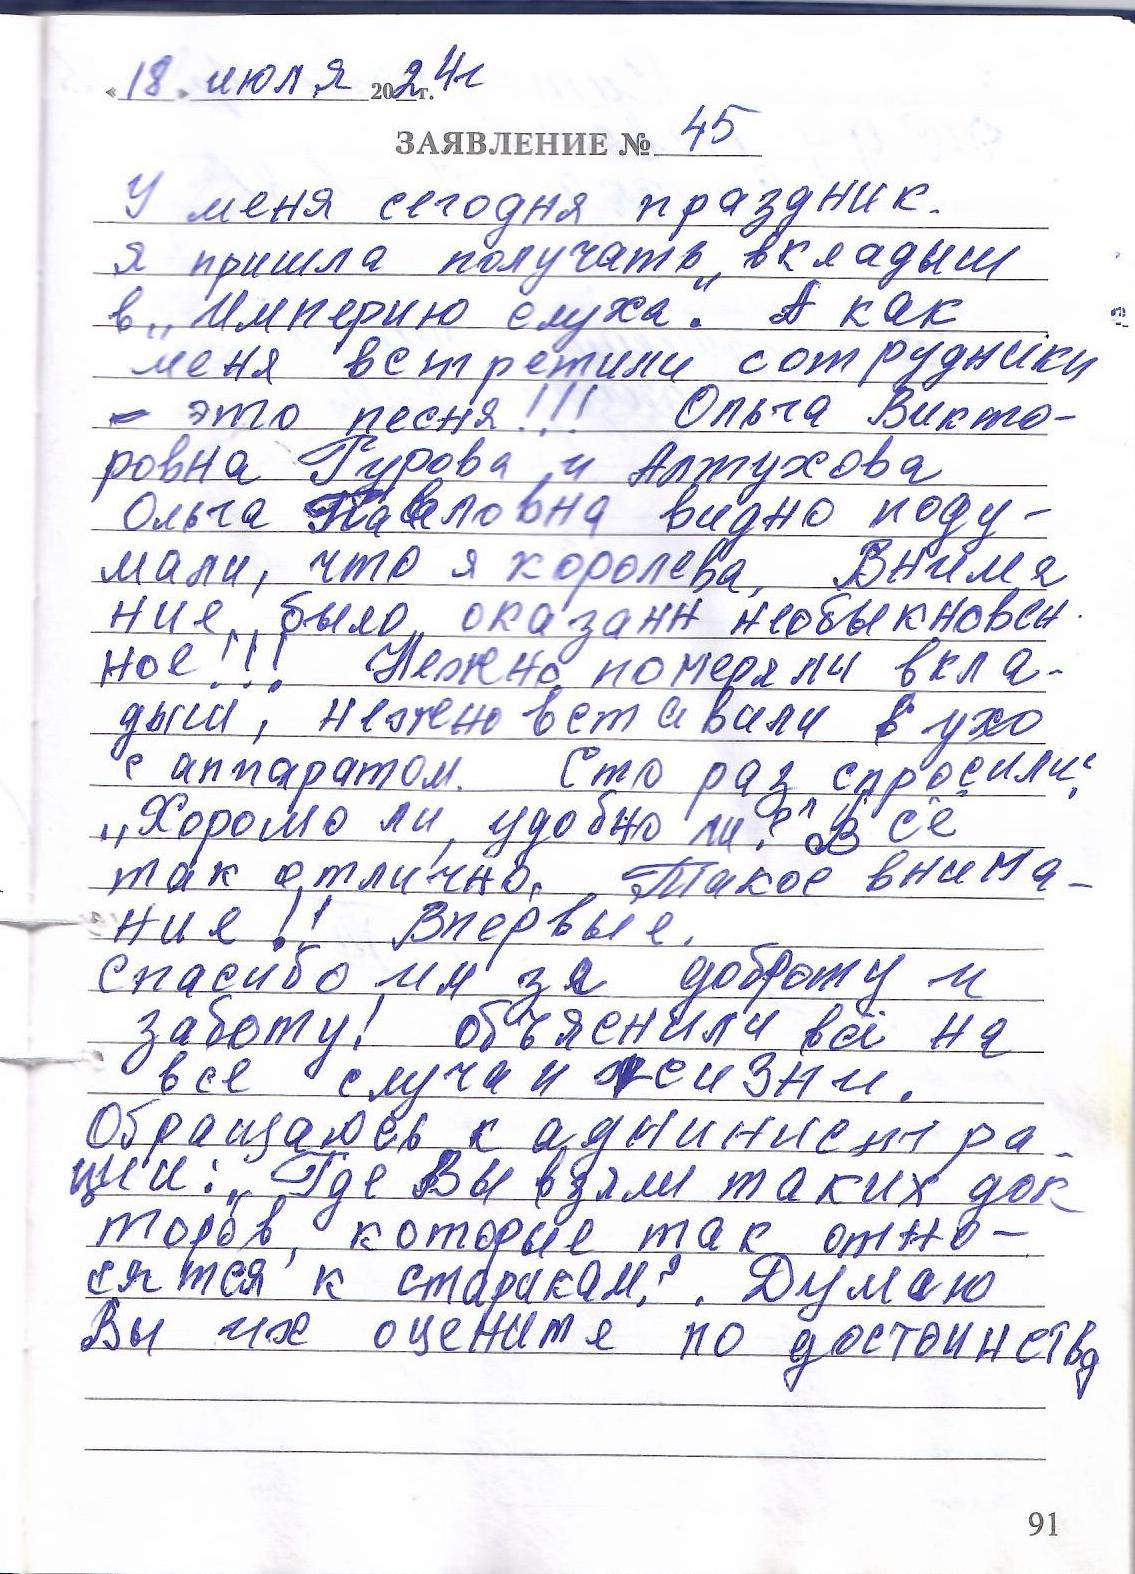 « 18 » июля 2024г.
ЗАЯВЛЕНИЕ № 45
У меня сегодня праздник.
Я пришла получать вкладыш
в „Империю слуха". А как
меня встретили сотрудники
– это песня!!! Ольга Викто-
ровна Гурова и Алтухова
Ольга Павловна видно поду-
мали, что я королева. Внима
ние было оказанн необыкновен-
ное!!! Нежно померяли вкла-
дыш, нежно вставили в ухо
с аппаратом. Сто раз спросили:
„Хорошо ли, удобно ли?" Всё
так отлично. Такое внима-
ние!! Впервые.
Спасибо им за доброту и
заботу! Объяснили всё на
все случаи жизни.
Обращаюсь к администра-
ции: „Где Вы взяли таких док
торов, которые так отно-
сятся к старикам?. Думаю
Вы их оцените по достоинству
91